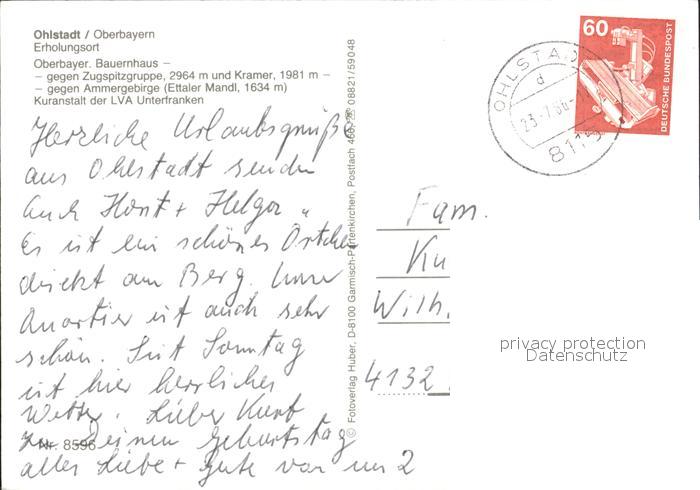 Ohlstadt / Oberbayern
Erholungsort
Oberbayer. Bauernhaus –
– gegen Zugspitzgruppe, 2964 m und Kramer, 1981 m –
– gegen Ammergebirge (Ettaler Mandl, 1634 m)
Kuranstalt der LVA Unterfranken
Herzliche Urlaubsgrüße
aus Ohlstadt senden
Euch Horst + Helga
Es ist ein schönes Örtchen
direkt am Berg. Unser
Quartier ist auch sehr
schön. Seit Sonntag
ist hier herrliches
Wetter. Lieber Kurt
zu Deinem Geburtstag
alles Liebe + gute von uns 2
Nr. 8596
© Fotoverlag Huber, D-8100 Garmisch-Partenkirchen, Postfach 460, 08821/59048
60
DEUTSCHE BUNDESPOST
OHLSTADT
d
8115
Fam.
Ku
Wilh.
4132
privacy protection
Datenschutz